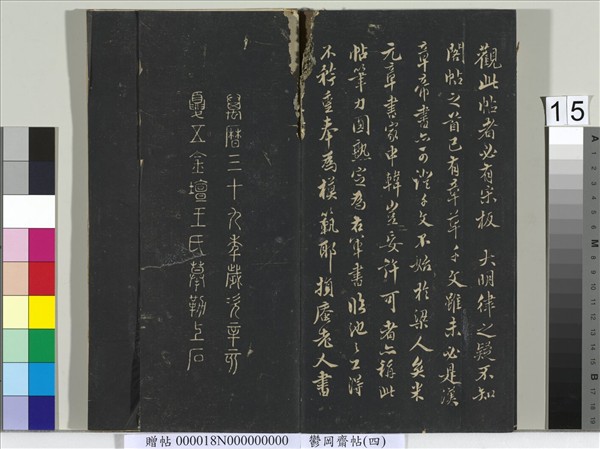 觀此帖者必有宋板 大明律之疑不知
閣帖之首已有章草千文雖未必是漢
章帝書亦可證千文不始於梁人矣米
元章書家申韓豈妄許可者亦稱此
帖筆力圓熟定為右軍書臨池之工得
不珍重奉為模範耶損庵老人書
萬曆三十九年歲次辛亥
夏五金壇王氏摹勒上石
15
贈帖 000018N000000000 鬱岡齋帖(四)